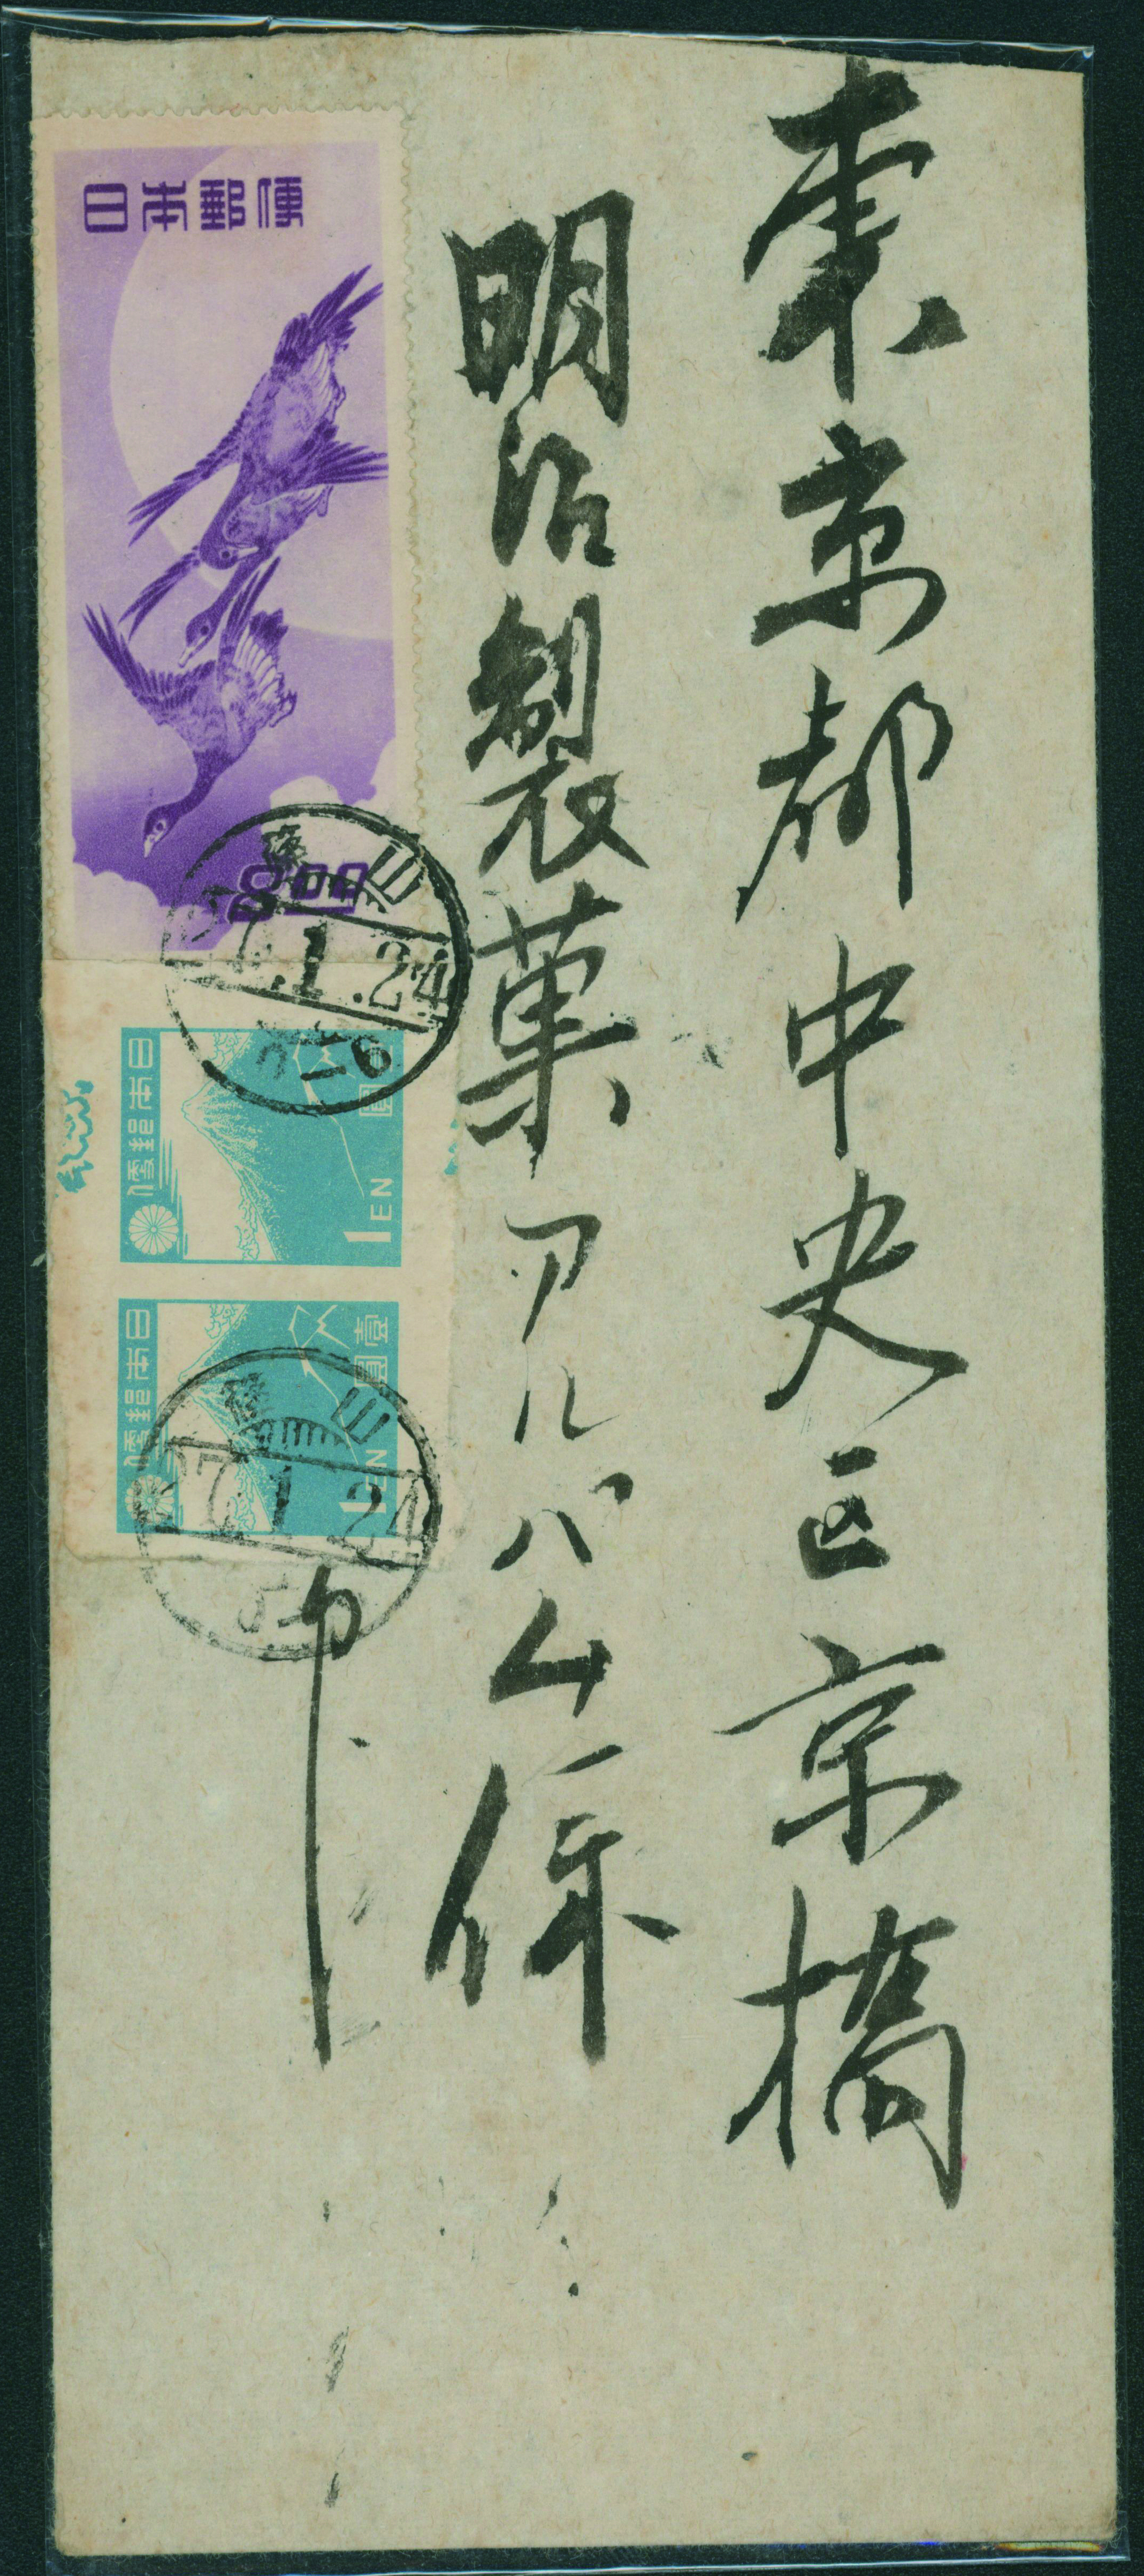 東京都中央区京橋
明治製菓アルバム係
日本郵便
800
7.1.24
日本郵便
圓
1EN
日本郵便
壹圓
1EN
27.1.24